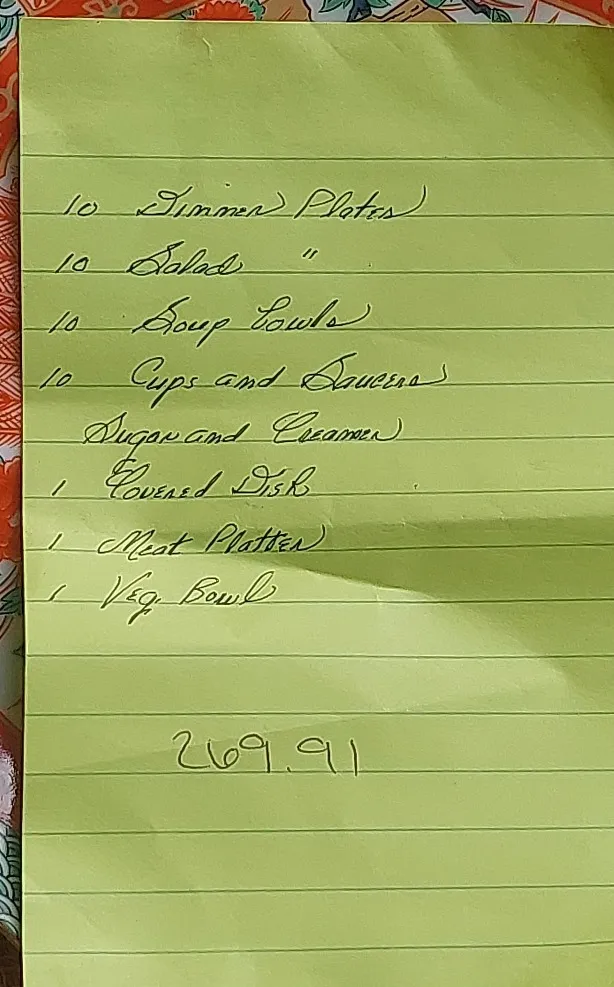 10 Dinner Plates
10 Salad "
10 Soup Bowls
10 Cups and Saucers
Sugar and Creamer
1 Covered Dish
1 Meat Platter
1 Veg. Bowl
269.91